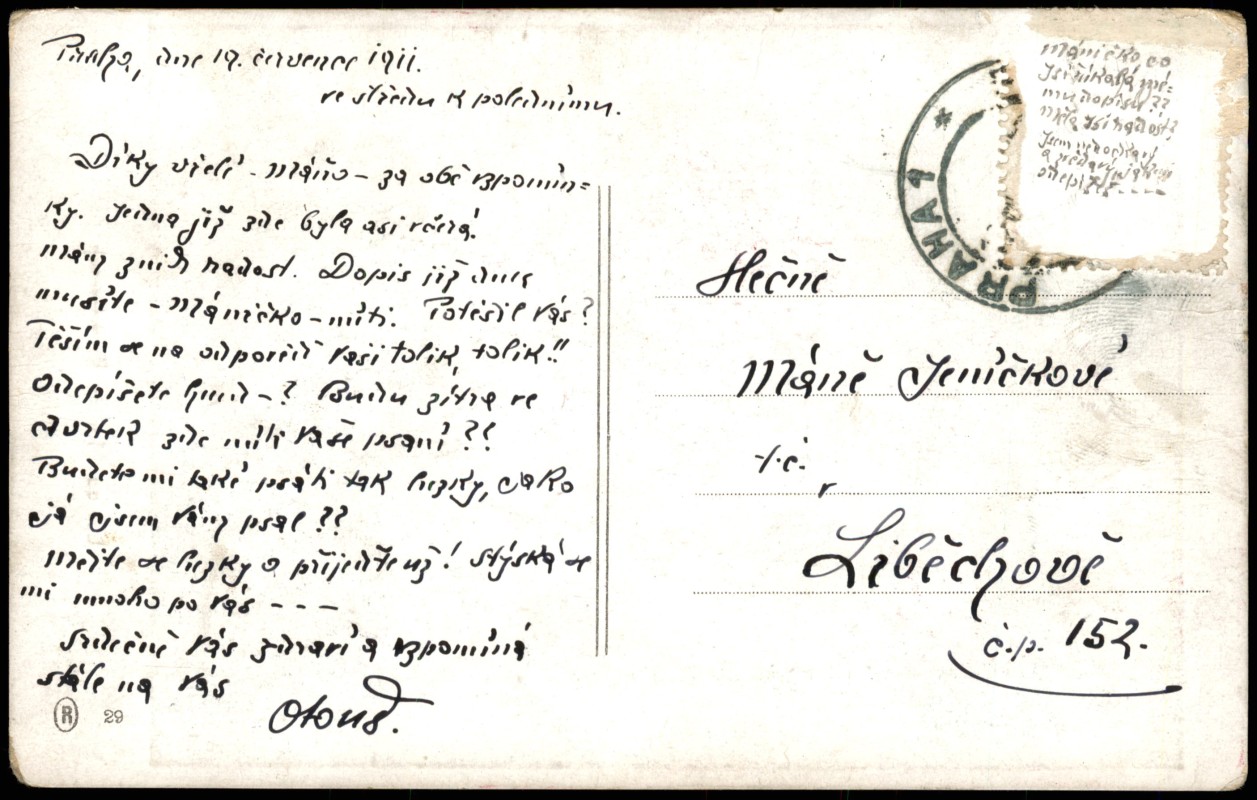 Praha, dne 19. července 1911.
ve středu k polednímu.
Díky vřelé - Máňo - za obě vzpomín=
ky. Jedna již zde byla asi včera!
mám z nich radost. Dopis již dnes
musíte - Máničko - míti. Potěšil Vás?
Těším se na odpověď Vaši tolik, tolik!!
Odepíšete hned -? Budu zítra ve
čtvrtek zde míti Vaše psaní??
Budete mi také psáti tak hezky, jako
já jsem Vám psal??
mějte se hezky a přijeďte už! Stýská se
mi mnoho po Vás - - -
Srdečně Vás zdraví a vzpomíná
stále na Vás
Otouš.
R 29
PRAHA 1 *
Máničko co
jsi říkala mé=
mu dopisu??
měla jsi radost?
Jsem
a
odepíš - - - -
Slečně
Máně Jeníčkové
t.č.
v
Liběchově
č.p. 152.